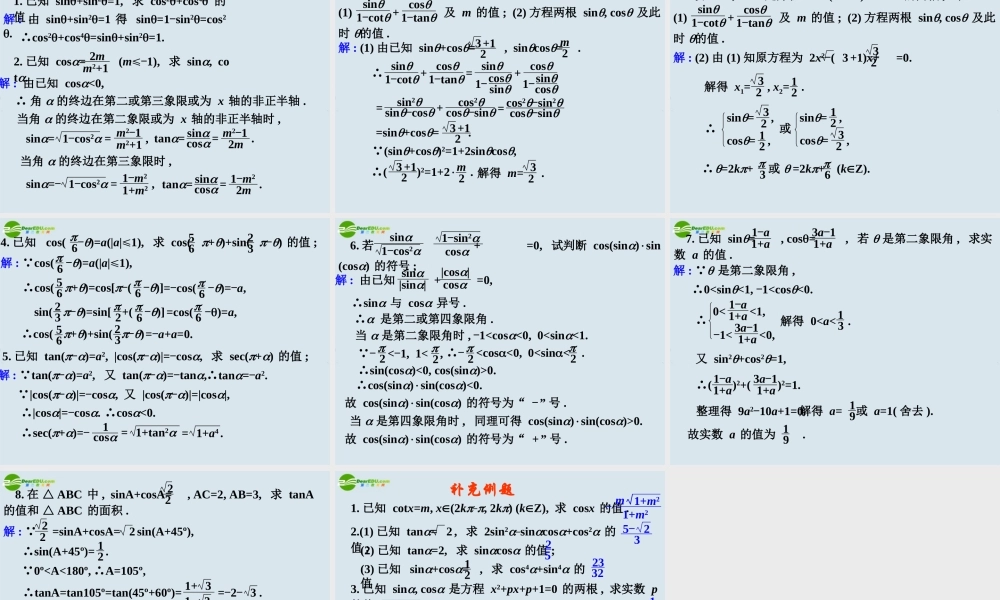 1. 已知 sinθ+sin²θ=1, 求 cos²θ+cos⁴θ 的值.
解: 由 sinθ+sin²θ=1 得 sinθ=1−sin²θ=cos²θ.
∴cos²θ+cos⁴θ=sinθ+sin²θ=1.
2. 已知 cosα= 2m/(m²+1) (m≤−1), 求 sinα, cotα
解: 由已知 cosα<0,
∴ 角 α 的终边在第二或第三象限或为 x 轴的非正半轴 .
当角 α 的终边在第二象限或为 x 轴的非正半轴时 ,
sinα=√1−cos²α = (m²−1)/(m²+1) , tanα= sinα/cosα = (m²−1)/2m .
当角 α 的终边在第三象限时 ,
sinα=−√1−cos²α = (1−m²)/(1+m²) , tanα= sinα/cosα = (1−m²)/2m .
(1) sinθ/(1−cotθ) + cosθ/(1−tanθ) 及 m 的值 ; (2) 方程两根 sinθ, cosθ 及此时 θ的值 .
解 : (1) 由已知 sinθ+cosθ= (√3+1)/2 , sinθcosθ= m/2 .
∴ sinθ/(1−cotθ) + cosθ/(1−tanθ) = sinθ/(1−cosθ/sinθ) + cosθ/(1−sinθ/cosθ)
= sin²θ/(sinθ−cosθ) + cos²θ/(cosθ−sinθ) = (cos²θ−sin²θ)/(cosθ−sinθ)
=sinθ+cosθ= (√3+1)/2 .
∵(sinθ+cosθ)²=1+2sinθcosθ,
∴( (√3+1)/2 )²=1+2· m/2 . 解得 m= √3/2 .
(1) sinθ/(1−cotθ) + cosθ/(1−tanθ) 及 m 的值 ; (2) 方程两根 sinθ, cosθ 及此时 θ的值 .
解 : (2) 由 (1) 知原方程为 2x²−( 3 +1)x+ √3/2 =0.
解得 x₁= √3/2 , x₂= 1/2 .
∴ { sinθ= √3/2 , cosθ= 1/2 , 或 { sinθ= 1/2 , cosθ= √3/2 ,
∴θ=2kπ+ π/3 或 θ=2kπ+ π/6 (k∈Z).
4. 已知 cos( π/6 −θ)=a(|a|≤1), 求 cos( 5/6 π+θ)+sin( 2/3 π−θ) 的值 ;
解 : ∵cos( π/6 −θ)=a(|a|≤1),
∴cos( 5/6 π+θ)=cos[π−( π/6 −θ)]=−cos( π/6 −θ)=−a,
sin( 2/3 π−θ)=sin[ π/2 +( π/6 −θ)] =cos( π/6 −θ)=a,
∴cos( 5/6 π+θ)+sin( 2/3 π−θ)=−a+a=0.
5. 已知 tan(π−α)=a², |cos(π−α)|=−cosα, 求 sec(π+α) 的值 ;
解 : ∵tan(π−α)=a², 又 tan(π−α)=−tanα,∴tanα=−a².
∵|cos(π−α)|=−cosα, 又 |cos(π−α)|=|cosα|,
∴|cosα|=−cosα. ∴cosα<0.
∴sec(π+α)=− 1/cosα = √1+tan²α = √1+a⁴ .
6. 若 sinα/√1−cos²α + √1−sin²α/cosα =0, 试判断 cos(sinα)·sin(cosα) 的符号 ;
解 : 由已知 sinα/|sinα| + |cosα|/cosα =0,
∴sinα 与 cosα 异号 .
∴α 是第二或第四象限角 .
当 α 是第二象限角时 , −1<cosα<0, 0<sinα<1.
∵− π/2 <−1, 1< π/2 , ∴− π/2 <cosα<0, 0<sinα< π/2 .
∴sin(cosα)<0, cos(sinα)>0.
∴cos(sinα)·sin(cosα)<0.
故 cos(sinα)·sin(cosα) 的符号为 “ −” 号 .
当 α 是第四象限角时 , 同理可得 cos(sinα)·sin(cosα)>0.
故 cos(sinα)·sin(cosα) 的符号为 “ +” 号 .
7. 已知 sinθ= (1−a)/(1+a) , cosθ= (3a−1)/(1+a) , 若 θ 是第二象限角 , 求实数 a 的值 .
解 : ∵θ 是第二象限角 ,
∴0<sinθ<1, −1<cosθ<0.
∴ { 0< (1−a)/(1+a) <1, −1< (3a−1)/(1+a) <0, 解得 0<a< 1/3 .
又 sin²θ+cos²θ=1,
∴( (1−a)/(1+a) )²+( (3a−1)/(1+a) )²=1.
整理得 9a²−10a+1=0 解得 a= 1/9 或 a=1( 舍去 ).
故实数 a 的值为 1/9 .
8. 在 △ ABC 中 , sinA+cosA= √2/2 , AC=2, AB=3, 求 tanA 的值和 △ ABC 的面积 .
解 : ∵ √2/2 =sinA+cosA= √2 sin(A+45º),
∴sin(A+45º)= 1/2 .
∵0º<A<180º, ∴A=105º,
∴tanA=tan105º=tan(45º+60º)= =−2−√3 .
补充例题
1. 已知 cotx=m, x∈(2kπ-π, 2kπ) (k∈Z), 求 cosx 的值 . m√1+m²/1+m²
2.(1) 已知 tanα=√2 , 求 2sin²α-sinαcosα+cos²α 的值 (5−√2)/3
(2) 已知 tanα=2, 求 sinαcosα 的值 ; 2/5
(3) 已知 sinα+cosα= 1/2 , 求 cos⁴α+sin⁴α 的值 23/32
3. 已知 sinα, cosα 是方程 x²+px+p+1=0 的两根 , 求实数 p